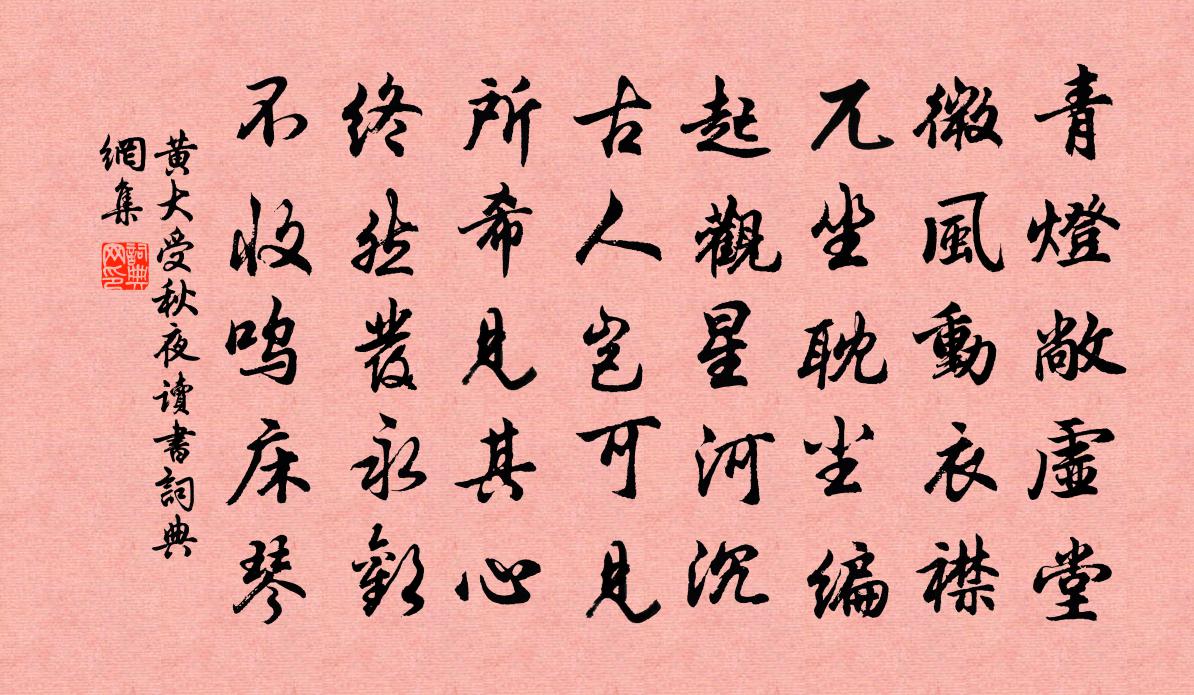 青燈敞虛堂
微風動衣襟
兀坐耽尘編
起觀星河沉
古人岂可見
所希見其心
终然發永歎
不收鸣床琴
黄大受秋夜讀書詞典
網集
詞典
网印